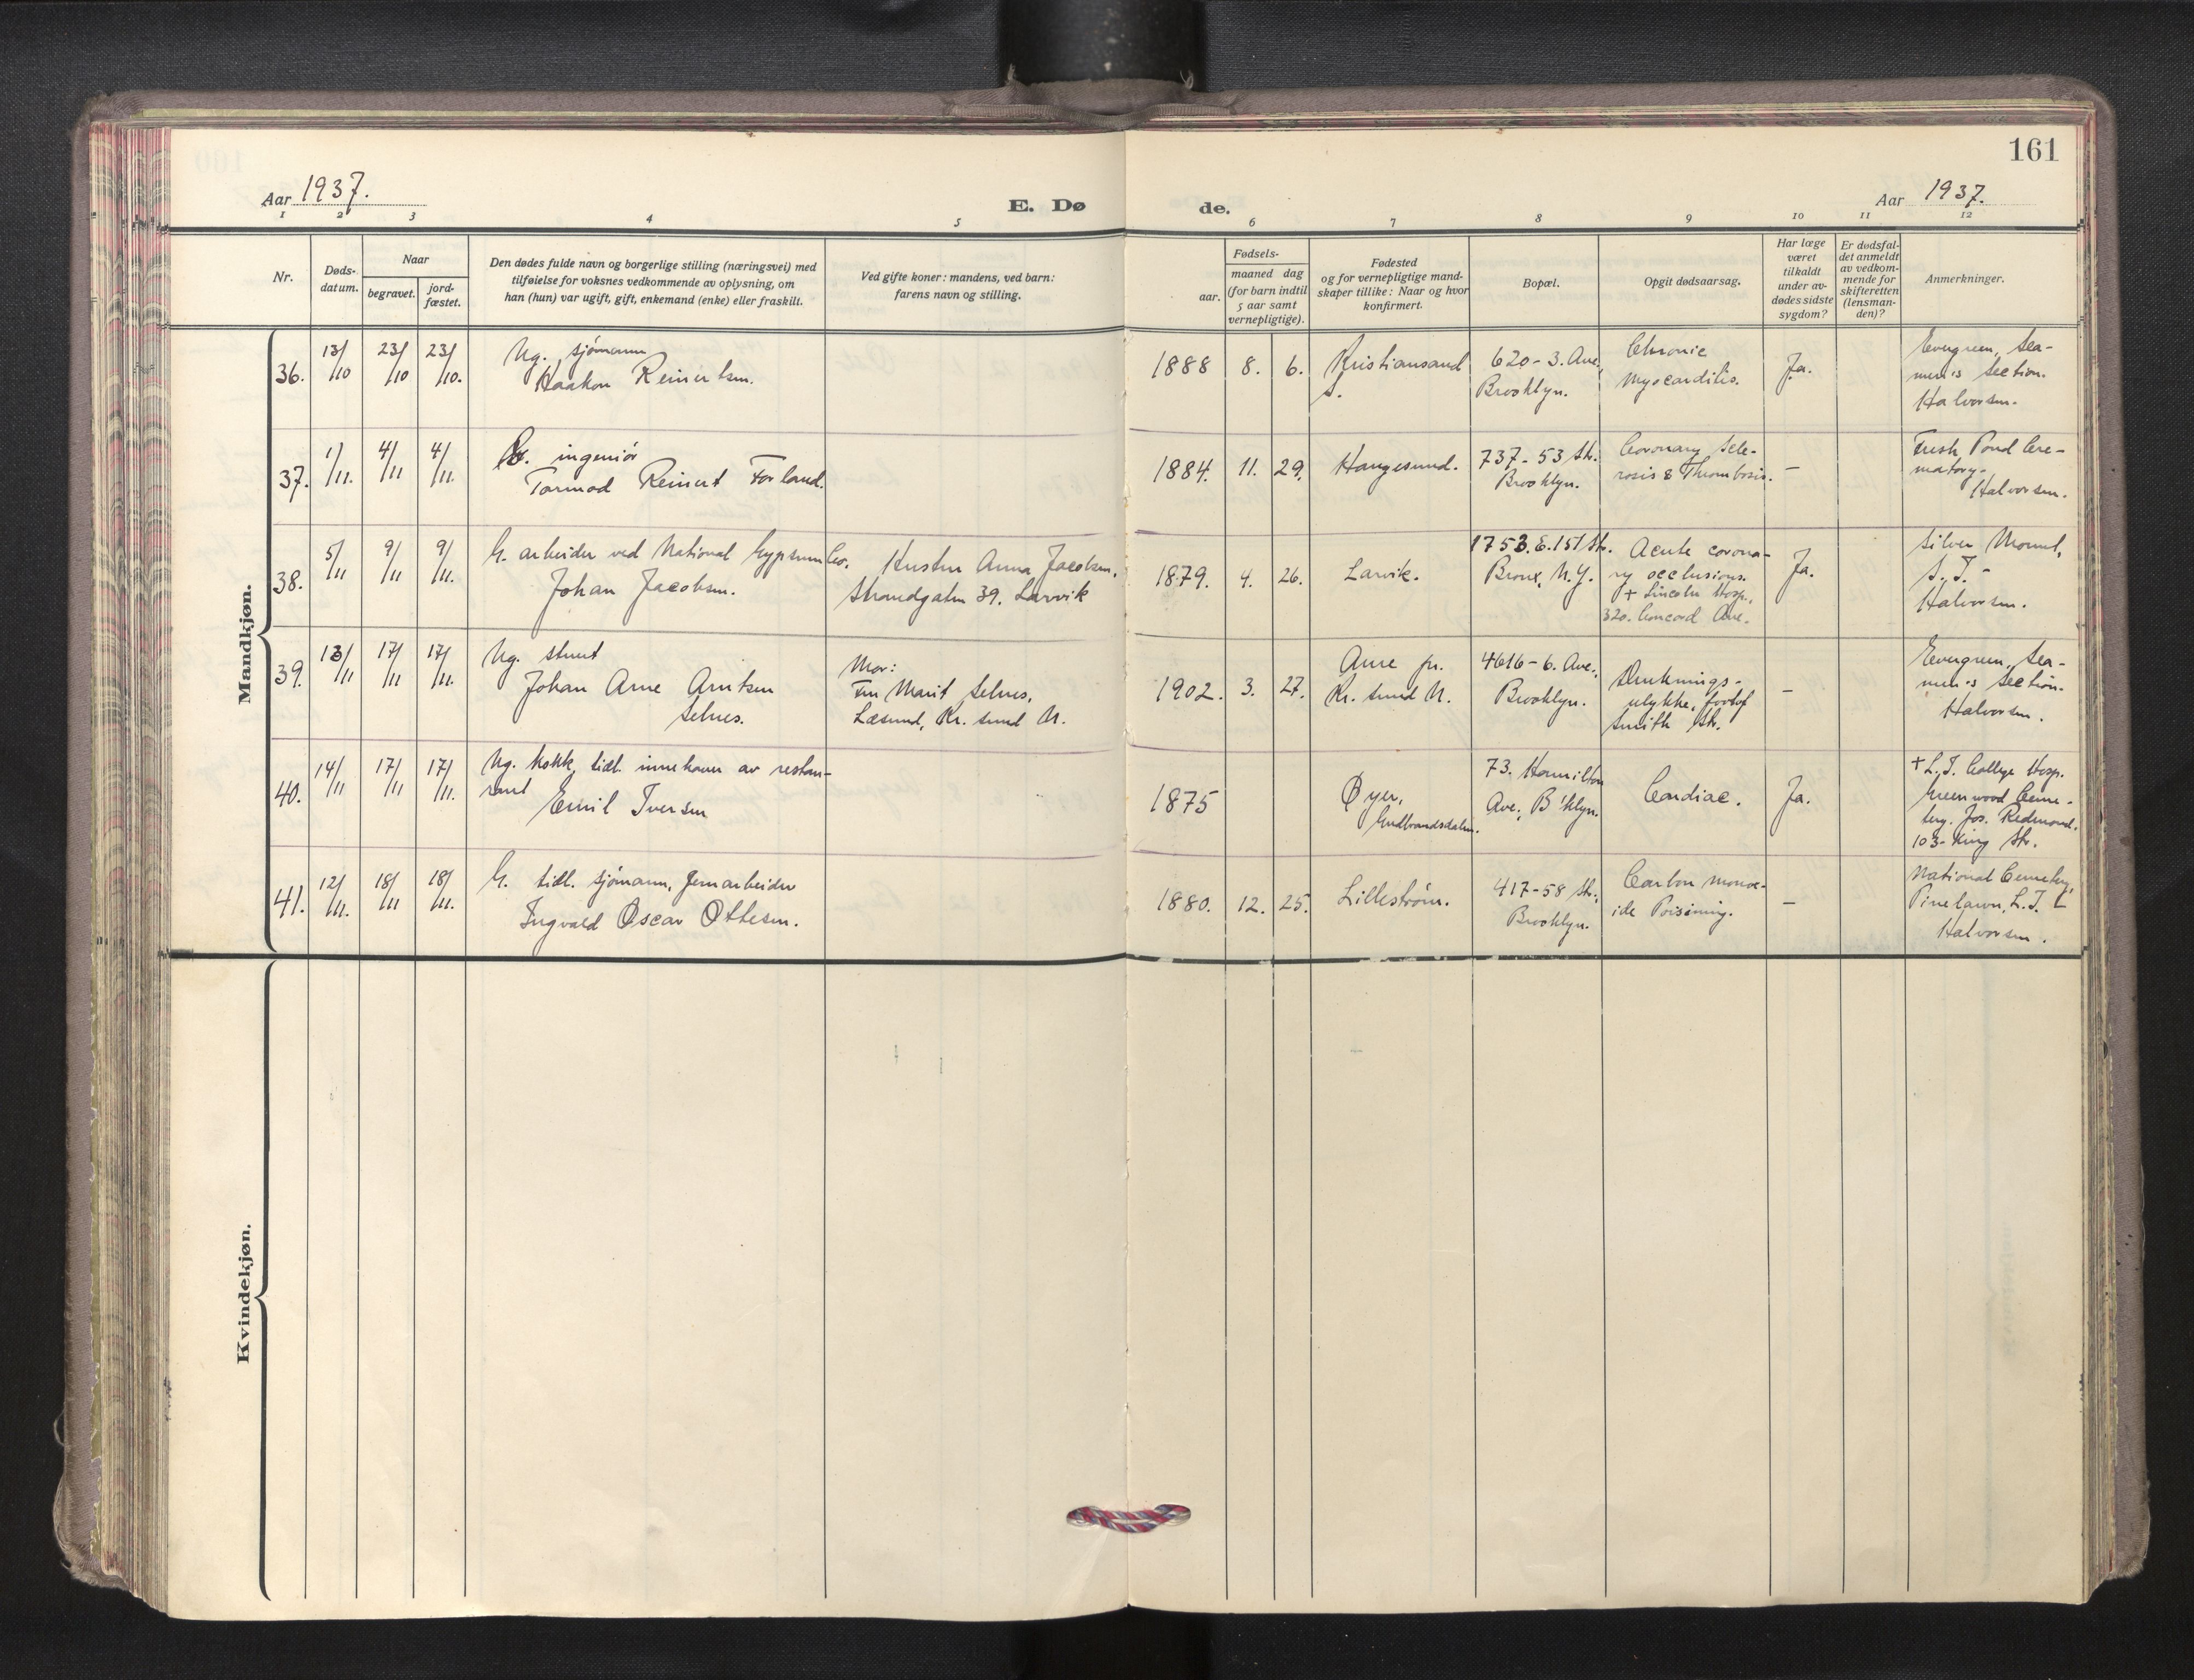 161
Aar 1937.
E. Dø
de.
Aar 1937.
1 2 3 4 5 6 7 8 9 10 11 12
Nr.
Døds-
datum.
Naar
begravet.
jord-
fæstet.
Den dødes fulde navn og borgerlige stilling (næringsvei) med
tilføielse for voksnes vedkommende av oplysning, om
han (hun) var ugift, gift, enkemand (enke) eller fraskilt.
Ved gifte koner: mandens, ved barn:
farens navn og stilling.
Fødsels-
aar.
maaned dag
(for barn indtil
5 aar samt
vernepligtige).
Fødested
og for vernepligtige mand-
skaper tillike: Naar og hvor
konfirmert.
Bopæl.
Opgit dødsaarsag.
Har læge
været
tilkaldt
under av-
dødes sidste
sygdom?
Er dødsfal-
det anmeldt
av vedkom-
mende for
skifteretten
(lensman-
den)?
Anmerkninger.
Mandkjøn.
36.
13/10
23/10
23/10.
Ug. sjømann
Haakon Reinertsen.
1888 8. 6.
Kristiansand
S.
620-3. Ave.,
Brooklyn.
Chronic
Myocarditis.
Ja.
Evergreen, Sea-
men's Section.
Halvorsen.
37.
1/11.
4/11
4/11.
ingeniør
Tormod Reinert Førland.
1884. 11. 29.
Haugesund.
737-53 Str.
Brooklyn.
Coronary Scle-
rosis & Thrombosis.
–
Fresh Pond Cre-
matory.
Halvorsen.
38.
5/11
9/11
9/11.
G. arbeider ved National Gypsum Co.
Johan Jacobsen.
Hustru Anna Jacobsen,
Strandgaten 39. Larvik
1879. 4. 26.
Larvik.
1753. E. 151 Str.
Bronx, N.Y.
Acute corona-
ry occlusions.
+ Lincoln Hosp.,
320. Concord Ave.
Ja.
Silver Mount,
S. I. -
Halvorsen.
39.
13/11
17/11
17/11.
Ug. stuert
Johan Arne Arntsen
Selnes.
Mor:
Fru Marit Selnes,
Læsund, Kr. sund N.
1902. 3. 27.
Aure pr.
Kr. sund N.
4616-6. Ave.,
Brooklyn.
Druknings-
ulykke, foot of
Smith Str.
–
Evergreen, Sea-
men's Section.
Halvorsen.
40.
14/11
17/11
17/11.
Ug. Kokk, tidl. innehaver av restau-
rant
Emil Iversen
1875
Øyer,
Gudbrandsdalen.
73. Hamilton
Ave., B'klyn.
Cardiac.
Ja.
+ L. I. College Hosp.
Greenwood Ceme-
tery. Jos. Redmond,
103- King Str.
41.
12/11.
18/11
18/11.
G. tidl. sjømann, Jernarbeider
Ingvald Oscar Ottesen.
1880. 12. 25.
Lillestrøm.
417-58 Str.,
Brooklyn.
Carbon monox-
ide Poisining.
–
National Cemetery,
Pinelawn, L. I.
Halvorsen.
Kvindekjøn.